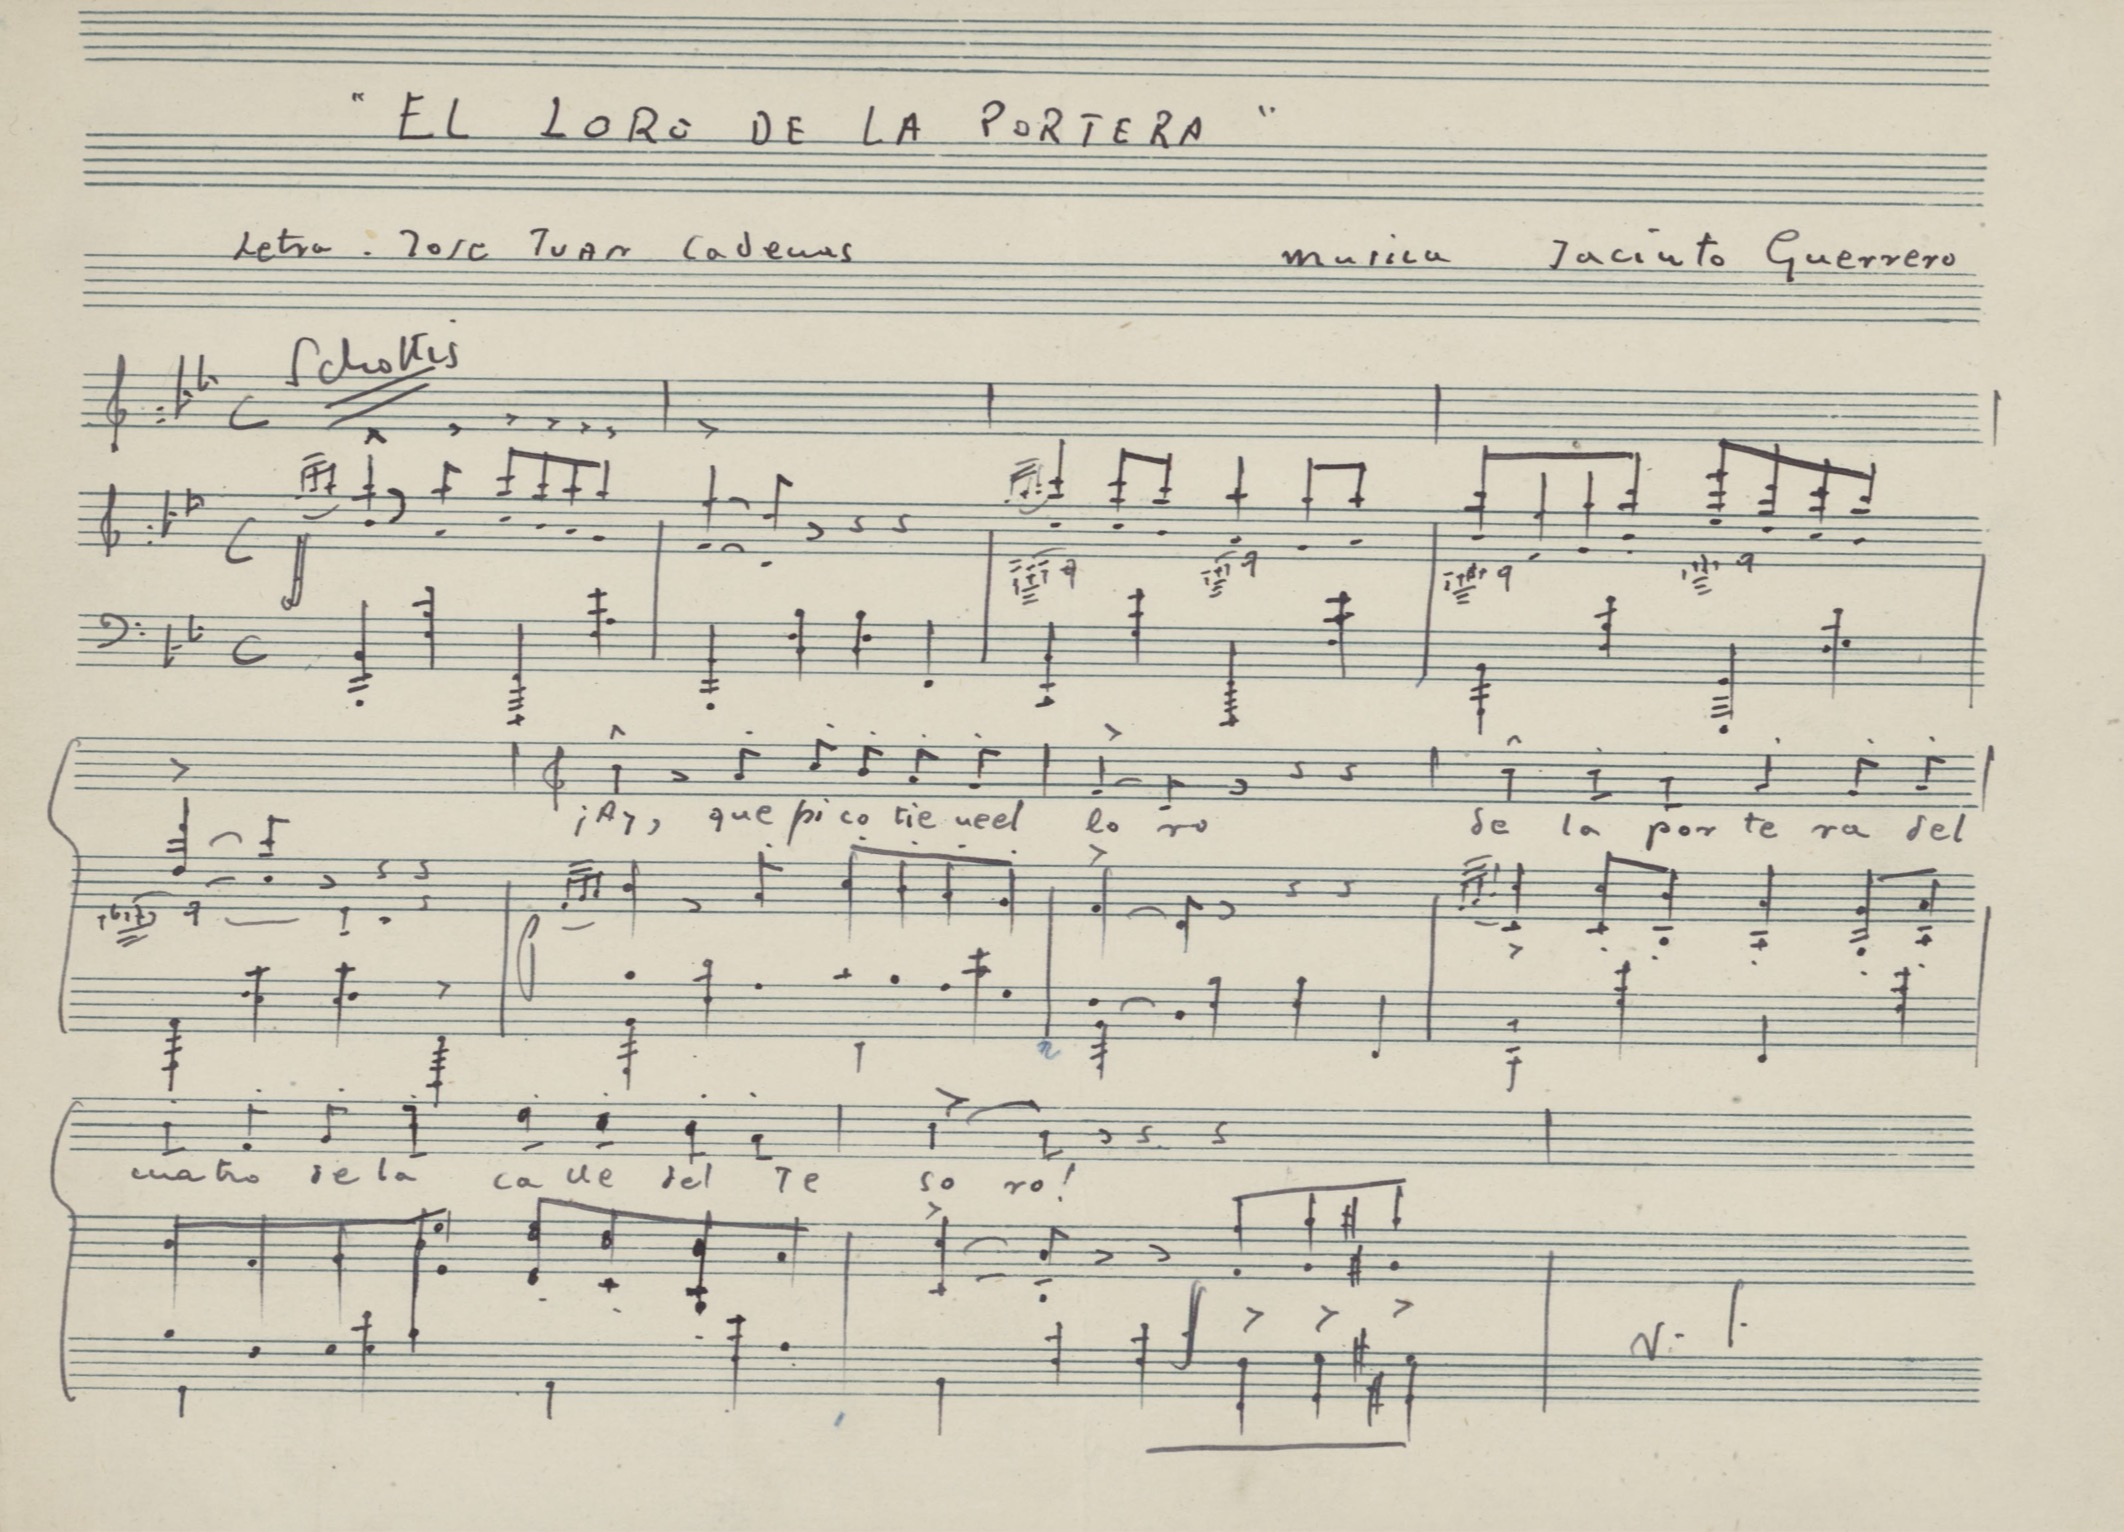 "EL LORO DE LA PORTERA"
Letra : JOSE JUAN Cadenas musica Jacinto Guerrero
Schottis
¡Ay, que pi co tie ne el lo ro de la por te ra del
cuatro de la ca lle del Te so ro!